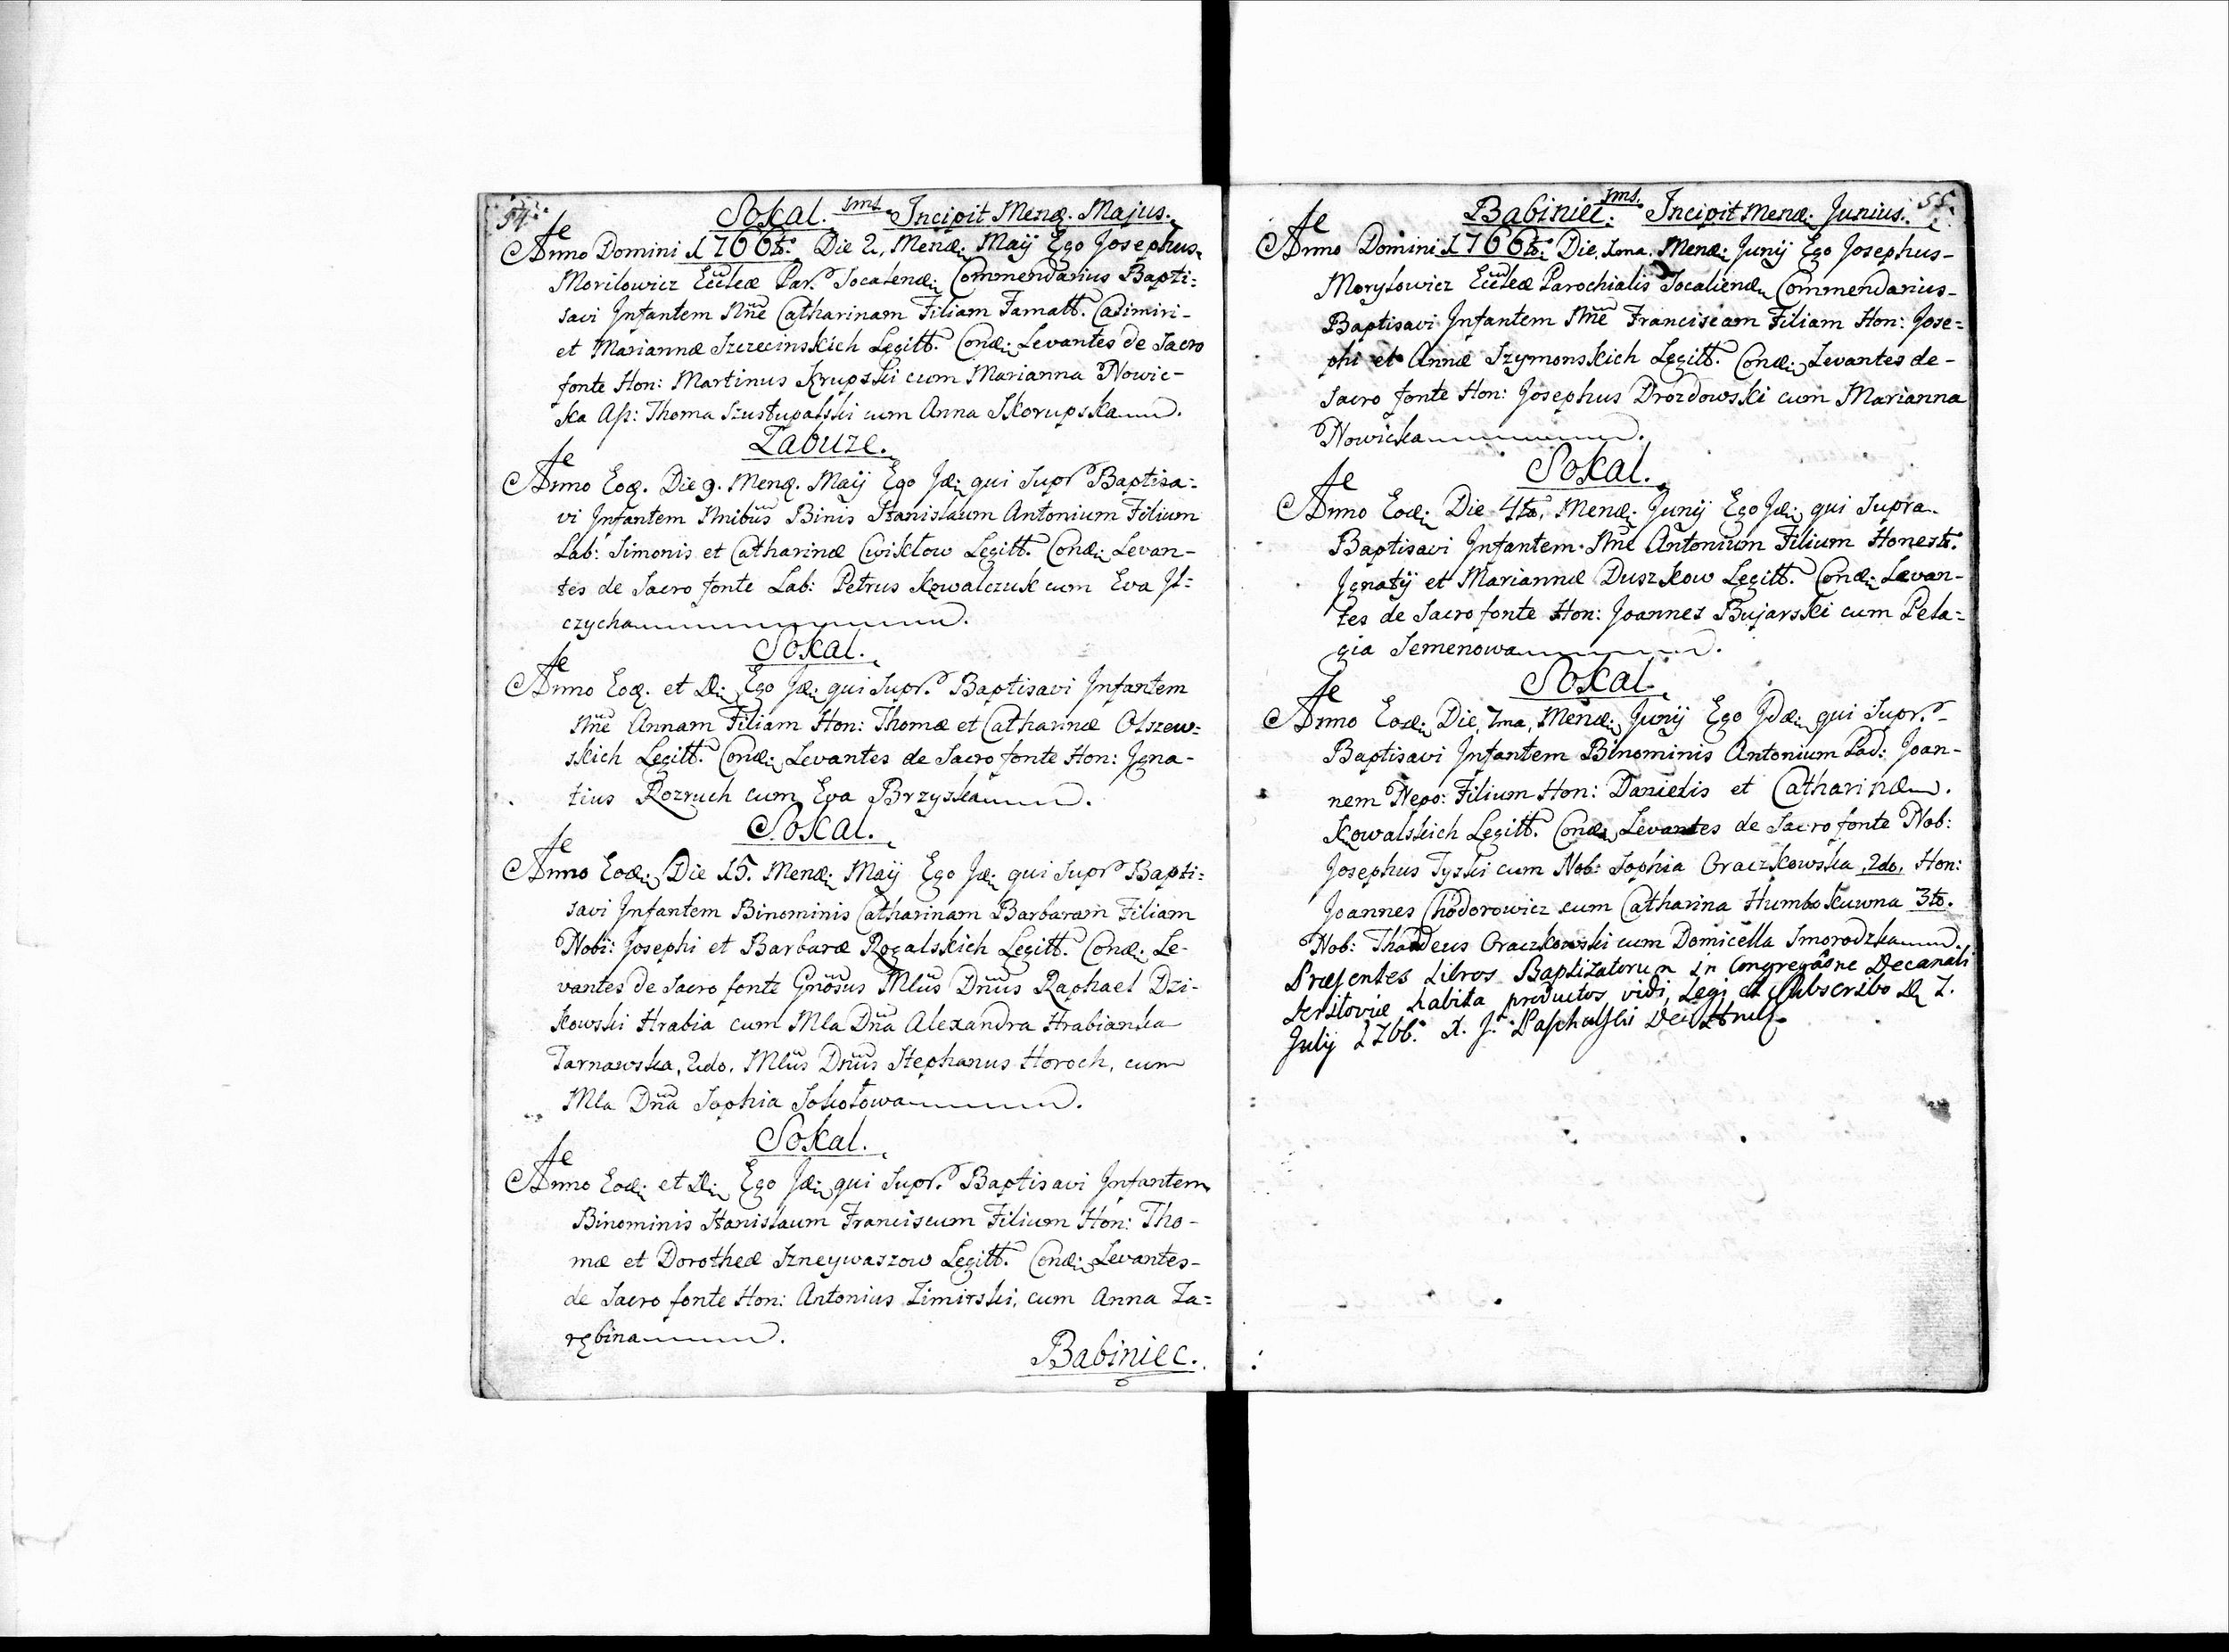 54.
Sokal. 1ms. Incipit Mensæ. Majus.
Anno Domini 1766to. Die 2, Mensæ: Maÿ Ego Josephus
Morilowicz Eccleæ Par. Socalensæ: Commendarius Bapti:
savi Infantem Nne Catharinam Filiam Famatt. Casimiri-
et Mariannæ Szczecinskich Legitt. Conæ: Levantes de Sacro
fonte Hon: Martinus Krupski cum Marianna Nowic-
ka Ass: Thoma Szustupalski cum Anna Skorupska.
Zabuze.
Anno Eoæ. Die 9. Menæ. Maÿ Ego Jdæ: qui Supr Baptisa:
vi Infantem Nnibus Binis Stanislaum Antonium Filium
Lab: Simonis et Catharinæ Cwikłow Legitt. Conæ: Levan-
tes de Sacro fonte Lab: Petrus Kowalczuk cum Eva Jl:
czycha.
Sokal.
Anno Eoæ. et Dæ: Ego Jdæ: qui Supr. Baptisavi Infantem
Nne Annam Filiam Hon: Thomæ et Catharinæ Olszew:
skich Legitt. Conæ: Levantes de Sacro fonte Hon: Jgna-
tius Rozruch cum Eva Brzyska.
Sokal.
Anno Eoæ: Die 15. Menæ: Maÿ Ego Jdæ: qui Supr Bapti:
savi Infantem Binominis Catharinam Barbaram Filiam
Nobi: Josephi et Barbaræ Rogalskich Legitt. Conæ: Le-
vantes de Sacro fonte Gnosus Mlus Dnus Raphael Dzi-
kowski Hrabia cum Mla Dna Alexandra Hrabianka
Tarnawska, 2do. Mlus Dnus Stephanus Horoch, cum
Mla Dna Sophia Sokołowa.
Sokal.
Anno Eoæ: et Dæ: Ego Jdæ: qui Supr. Baptisavi Infantem
Binominis Stanislaum Franciscum Filium Hon: Tho-
mæ et Dorotheæ Szneywaszow Legitt. Conæ: Levantes-
de Sacro fonte Hon: Antonius Zimirski, cum Anna Za:
rębina.
Babiniec.
55.
Babiniec. 1ms. Incipit Menæ: Junius.
Anno Domini 1766to: Die, 1ma. Menæ: Junÿ Ego Josephus-
Morylowicz Eccleæ Parochialis Socaliensæ Commendarius-
Baptisavi Infantem Nne Franciscam Filiam Hon: Jose=
phi et Annæ Szymonskich Legitt. Conæ: Levantes de-
Sacro fonte Hon: Josephus Drozdowski cum Marianna
Nowicka.
Sokal.
Anno Eoæ: Die 4ta, Menæ: Junÿ Ego Jdæ: qui Supra
Baptisavi Infantem Nne Antonium Filium Honest.
Jgnatÿ et Mariannæ Duszkow Legitt. Conæ: Levan-
tes de Sacro fonte Hon: Joannes Bujarski cum Pela=
gia Semenowa.
Sokal.
Anno Eoæ: Die, 7ma, Menæ: Junÿ Ego Jdæ: qui Supr.
Baptisavi Infantem Binominis Antonium Pad: Joan-
nem Nepo: Filium Hon: Danielis et Catharinæ
Kowalskich Legitt. Conæ: Levantes de Sacro fonte Nob:
Josephus Tyski cum Nob: Sophia Oraczkowska, 2do, Hon:
Joannes Chodorowicz cum Catharina Humbokuwna 3to.
Nob: Thaddeus Oraczkowski cum Domicella Smorodzka.
Præsentes Libros Baptizatorum in Congregaõne Decanali
habita productos, vidi, Legi, et Subscribo D 7.
Julij 1766.